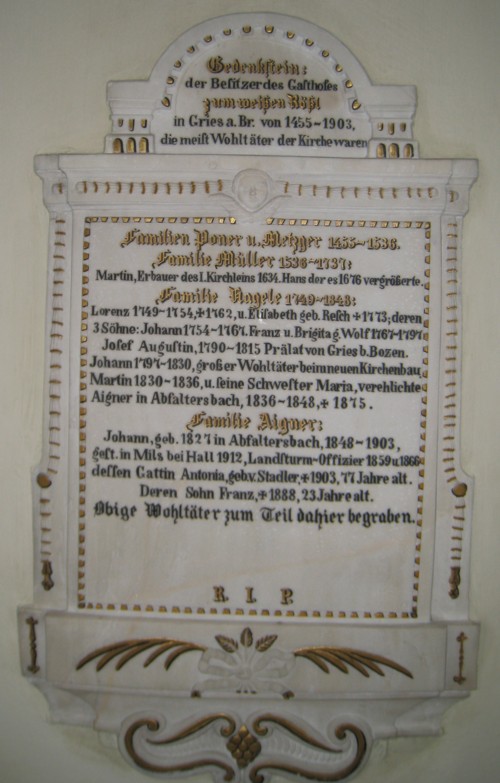 Gedenkstein:
der Besitzer des Gasthofes
zum weißen Rößl
in Gries a. Br. von 1455~1903,
die meist Wohltäter der Kirche waren
Familien Poner u. Metzger 1455~1536.
Familie Müller 1536~1737:
Martin, Erbauer des I. Kirchleins 1634. Hans der es 1676 vergrößerte.
Familie Nagele 1749~1848:
Lorenz 1749~1754, ✝1762, u. Elisabeth geb. Resch ✝1773; deren
3 Söhne: Johann 1754~1767. Franz u. Brigita g. Wolf 1767~1797.
Josef Augustin, 1790~1815 Prälat von Gries b. Bozen.
Johann 1797~1830, großer Wohltäter beim neuen Kirchenbau,
Martin 1830~1836, u. seine Schwester Maria, verehlichte
Aigner in Abfaltersbach, 1836~1848, ✝ 1875.
Familie Aigner:
Johann, geb. 1827 in Abfaltersbach, 1848~1903,
gest. in Mils bei Hall 1912, Landsturm~Offizier 1859 u. 1866
dessen Gattin Antonia, geb. v. Stadler, ✝1903, 77 Jahre alt.
Deren Sohn Franz, ✝1888, 23 Jahre alt.
Obige Wohltäter zum Teil dahier begraben.
R. I. P.